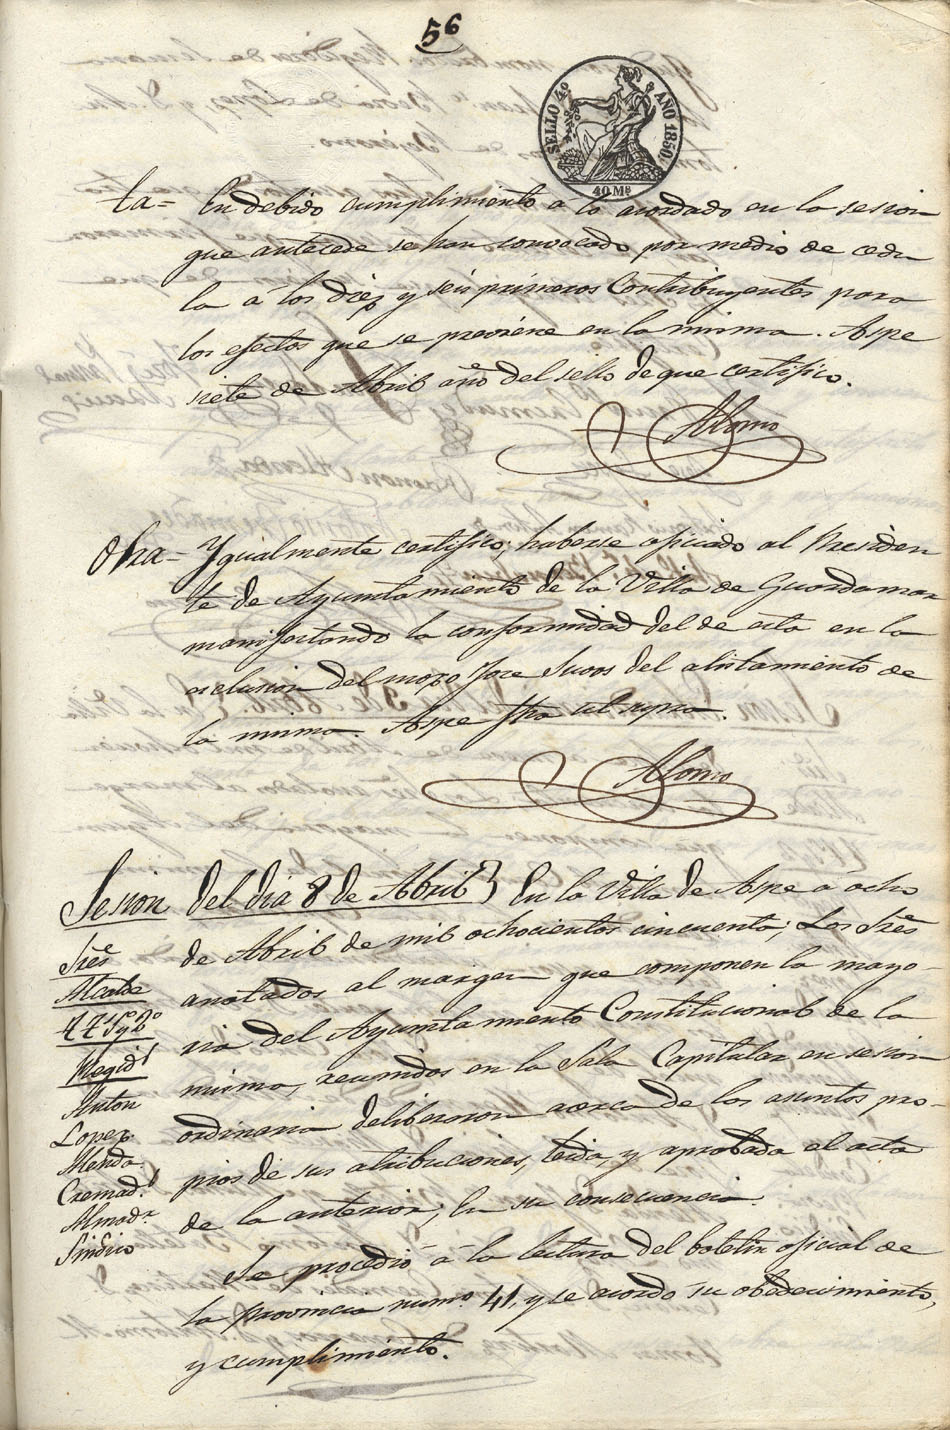 56
SELLO 4º AÑO 1850.
40 Mˢ
ta= En debido cumplimiento a lo acordado en la sesion
que antecede se han convocado por medio de cedu
la á los diez y seis primeros Contribuyentes para
los efectos que se previene en la misma. Aspe
siete de Abril año del sello de que certifico.
Alonso
Otra = Ygualmente certifico; haberse oficiado al Presiden
te de Ayuntamiento de la Villa de Guardamar
manifestando la conformidad del de ésta en la
esclusion del mozo Jose del alistamiento de
la misma. Aspe fha ut supra.
Alonso
Sesion del dia 8 de Abril} En la Villa de Aspe á ocho
de Abril de mil ochocientos cincuenta; Los Sres
anotados al margen que componen la mayo-
ria del Ayuntamiento Constitucional de la
misma, reunidos en la Sala Capitular en sesion
ordinaria deliberaron acerca de los asuntos pro-
pios de sus atribuciones, leida, y aprobada el acta
de la anterior; En su consecuencia.
Sres
Alcalde
Regid.ˢ
Anton
Lopez
Cremad.ˢ
Almod.ʳ
Sindico
Se procedió á la lectura del boletin oficial de
la Provincia num.º 41, y se acordó su obedecimiento,
y cumplimiento.